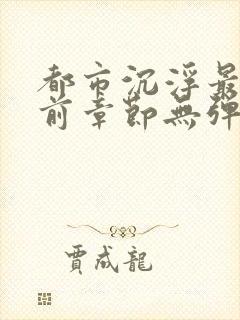 都市沉浮最
前章節無彈
賈成龍